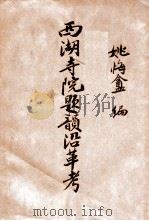 姚悔盦 编
西湖寺院題韻沿革考